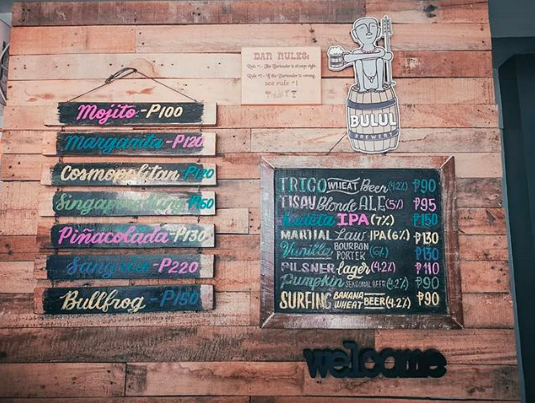 BAR RULES:
Rule #1 - The Bartender is always right
Rule #2 - If the Bartender is wrong
see rule #1
BULUL
BREWERY
Mojito - P100
Margarita - P120
Cosmopolitan - P120
Singapore Sling P150
Piñacolada - P130
Sangria - P220
Bullfrog - P150
TRIGO WHEAT Beer (4.2%) ₱90
TISAY Blonde ALE (5%) ₱95
Kadota IPA (7%) ₱150
MARTIAL Law IPA (6%) ₱130
Vanilla BOURBON PORTER (6%) ₱130
PILSNER lager (4.2%) ₱110
Pumpkin SEASONAL BEER ₱90
SURFING BANANA WHEAT BEER (4.2%) ₱90
welcome